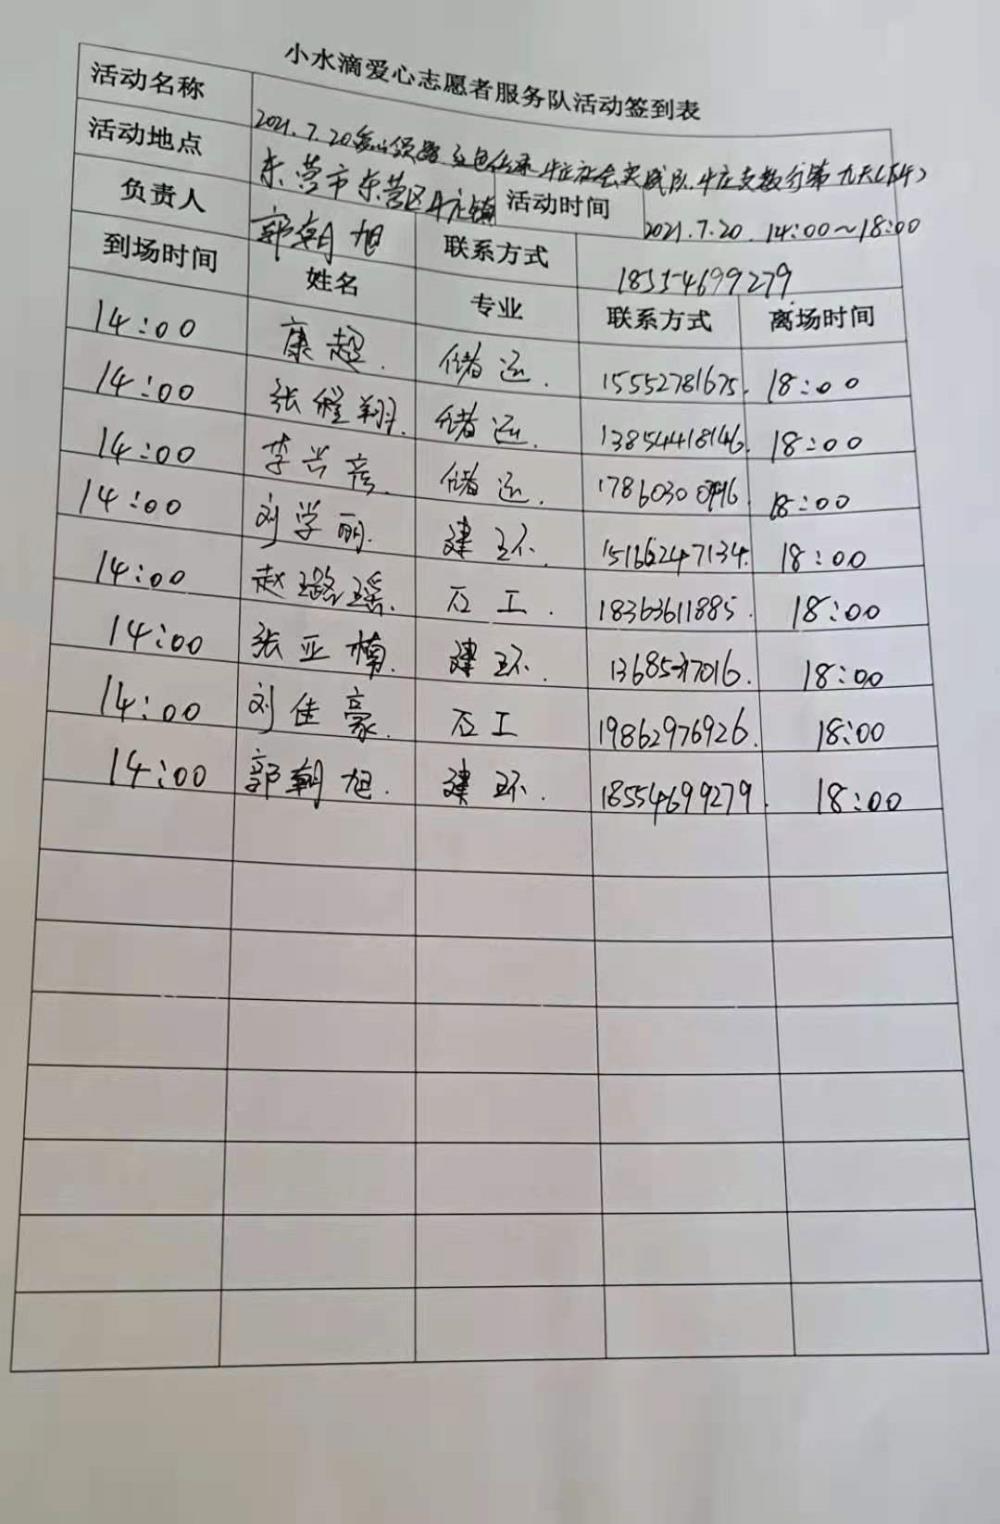 小水滴爱心志愿者服务队活动签到表
活动名称 2021.7.20 红色传承 牛庄社会实践队 牛庄支教行第九天(下午)
活动地点 东营市东营区牛庄镇 活动时间 2021.7.20 14:00~18:00
负责人 郭朝旭 联系方式 18554699279
到场时间 姓名 专业 联系方式 离场时间
14:00 康超. 储运. 15552781675. 18:00
14:00 张程翔. 储运. 13854418146. 18:00
14:00 李兴彦. 储运. 18:00
14:00 刘学丽. 建环. 15166247134. 18:00
14:00 赵璐瑶. 石工. 18363611885. 18:00
14:00 张亚楠. 建环. 18:00
14:00 刘佳豪. 石工 19862976926. 18:00
14:00 郭朝旭. 建环. 18554699279. 18:00